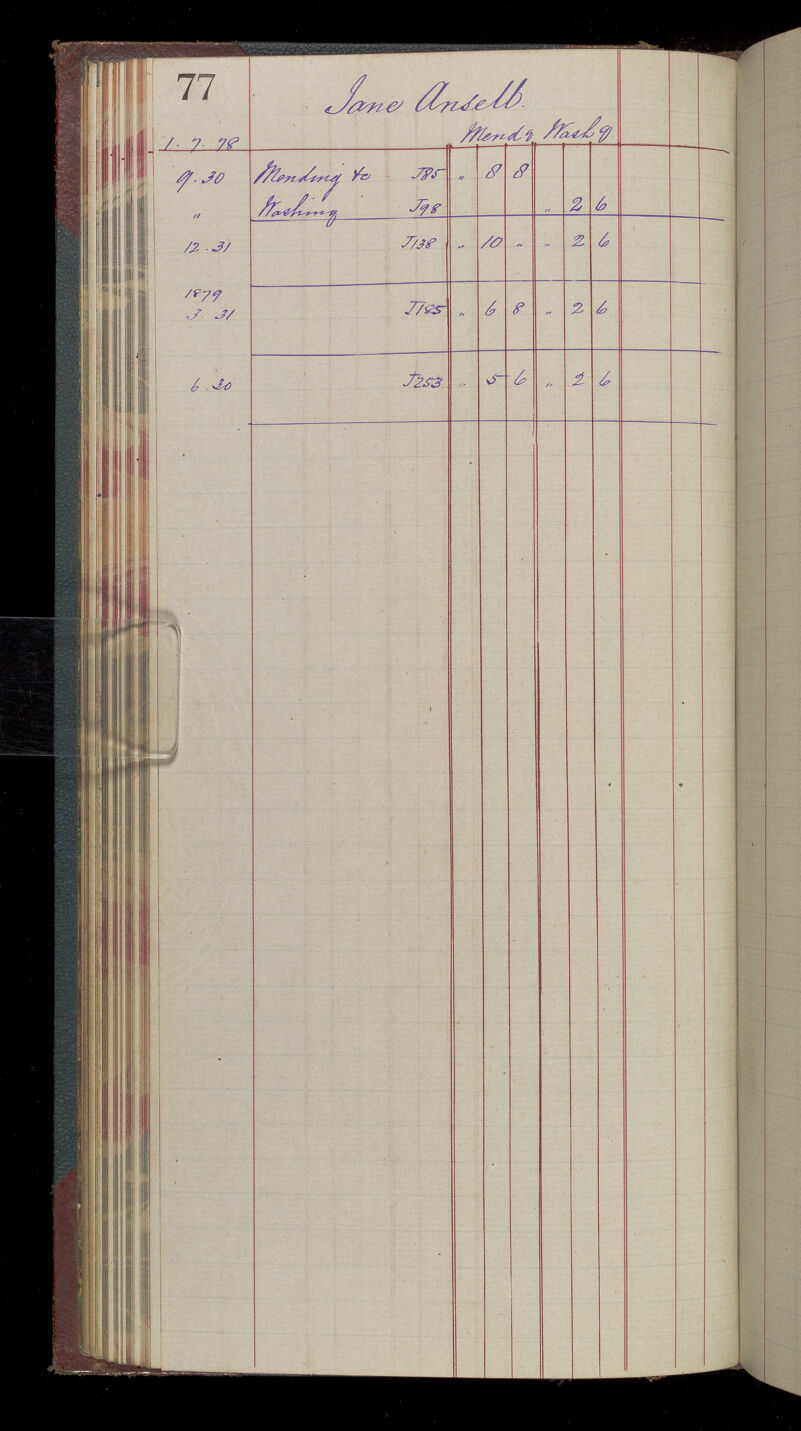 77
Jane Ansell.
1.7.78 Mendg Washg
9.30 Mending &c J85 " 8 8
" Washing J98 " 2 6
12.31 J138 " 10 " " 2 6
1879
3.31 J185 " 6 8 " 2 6
6.30 J253 " 5 6 " 2 6